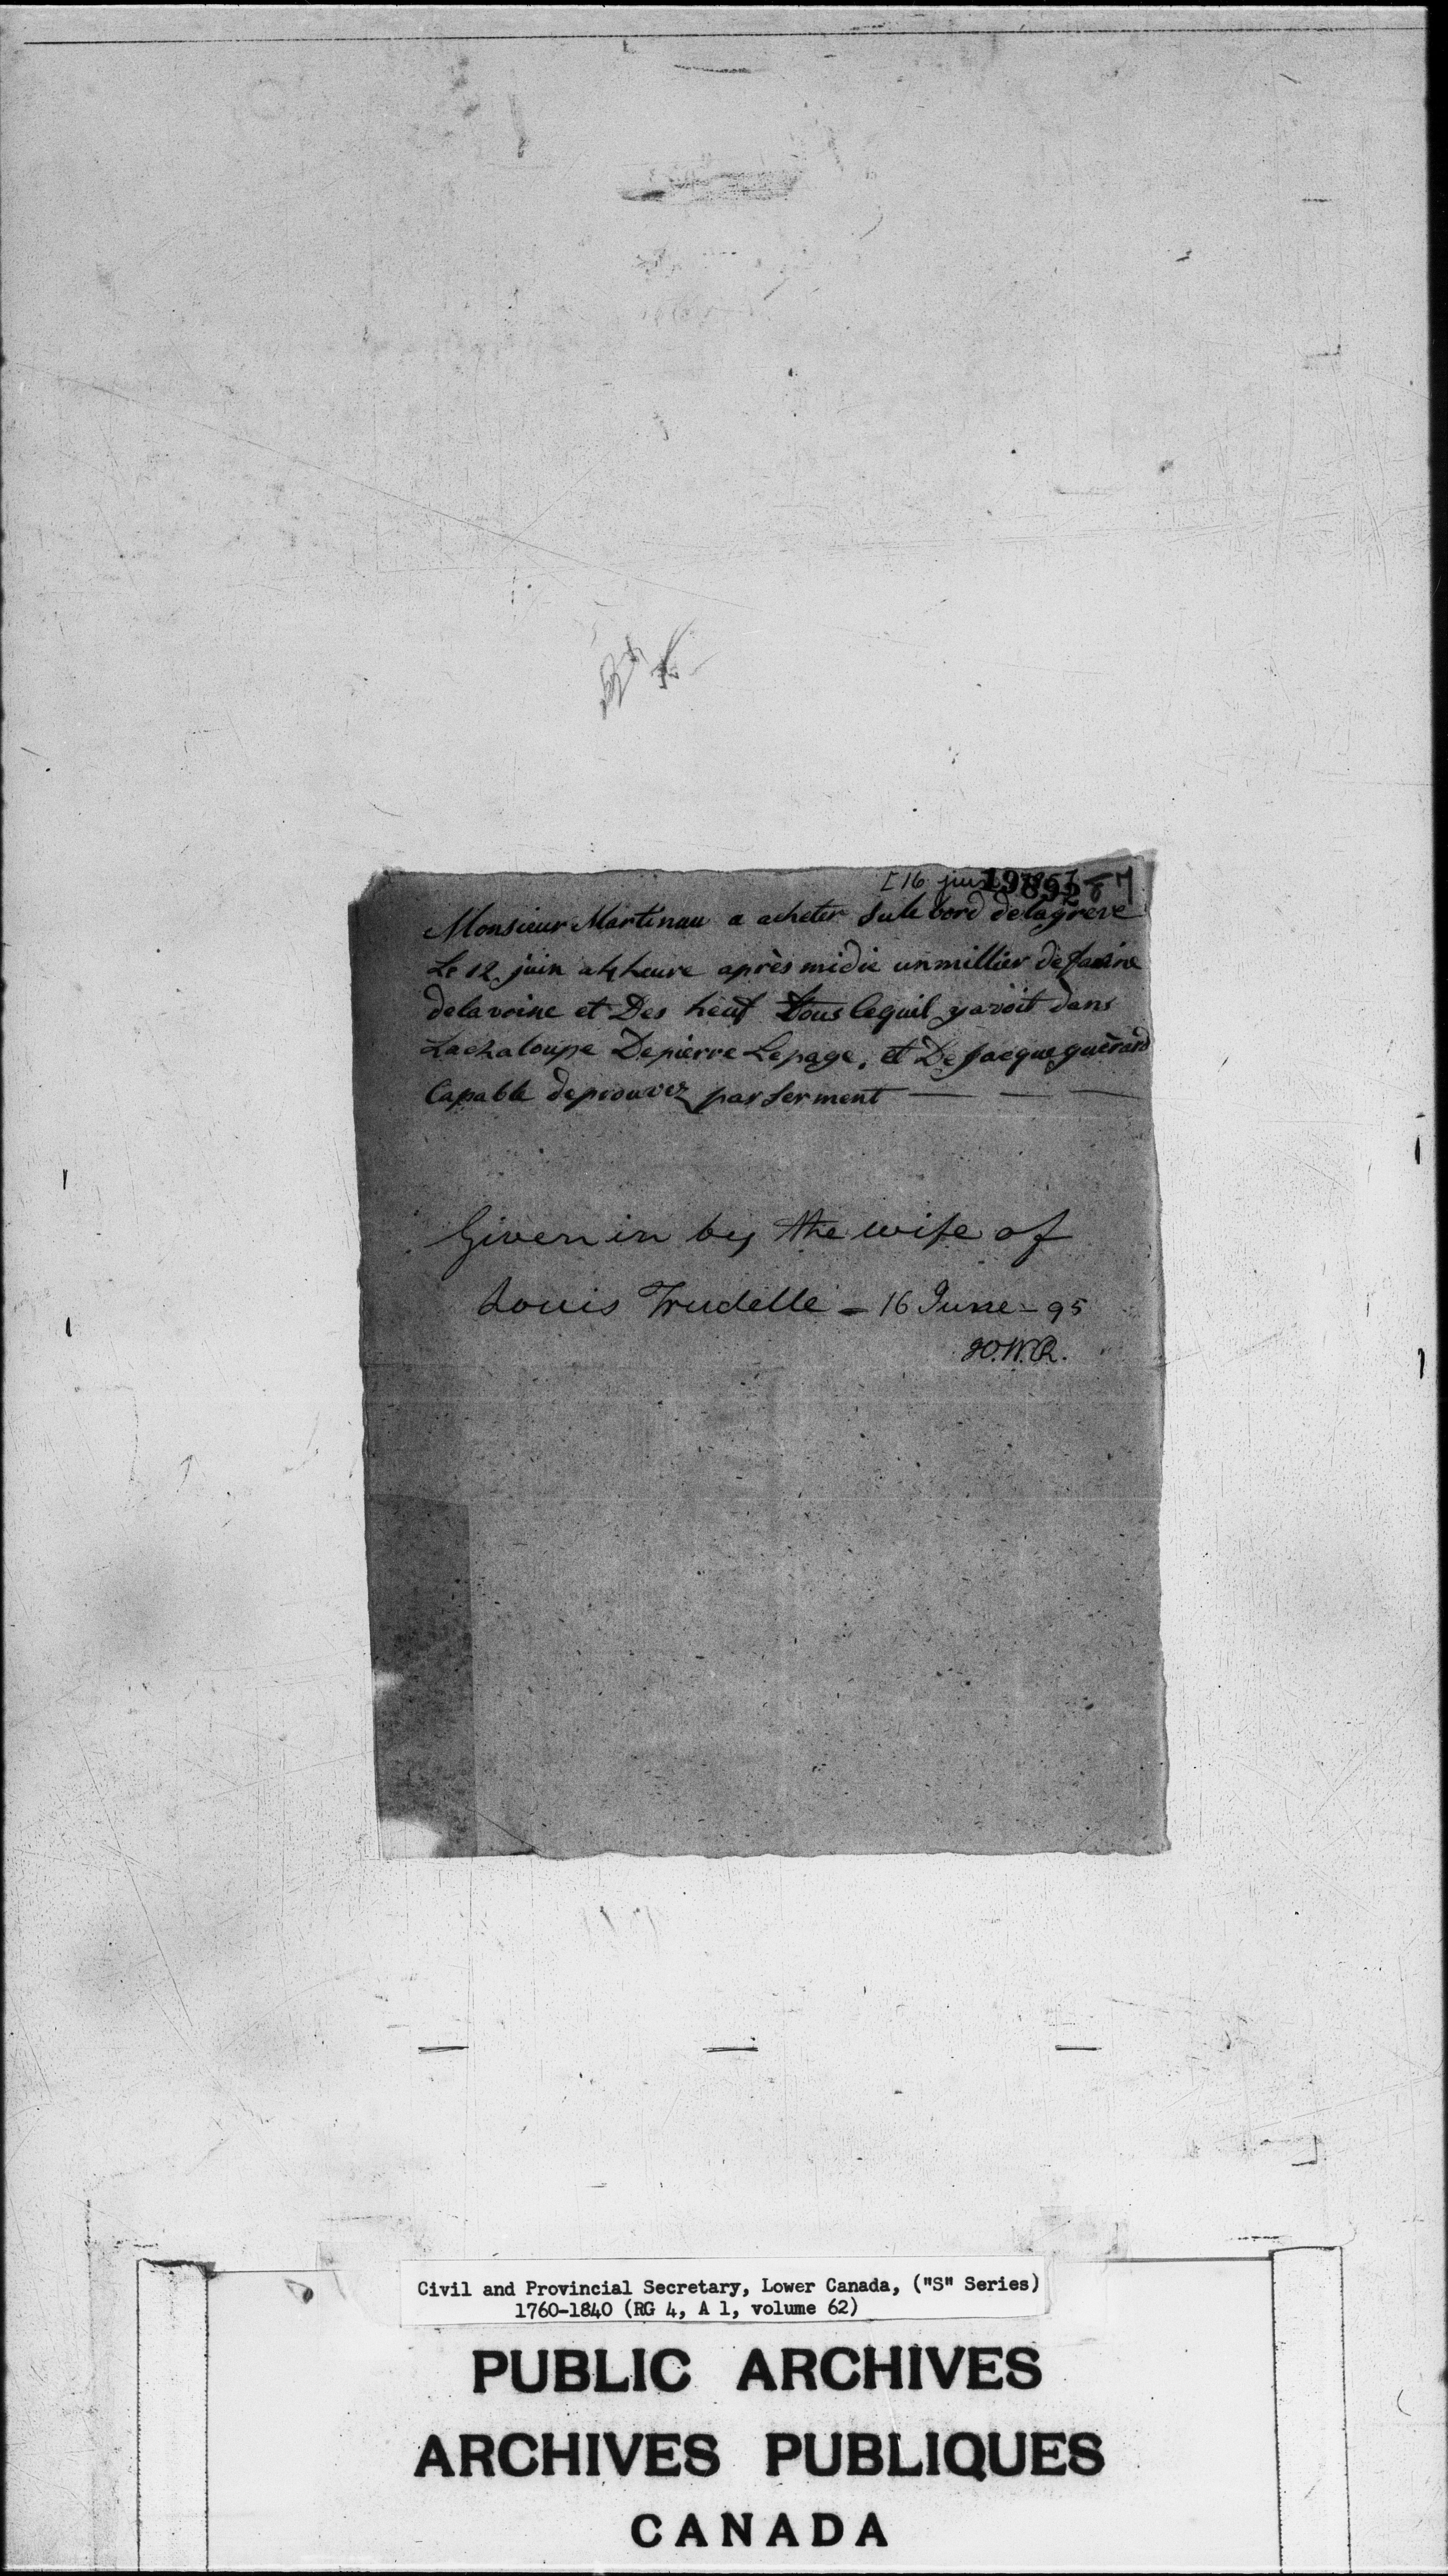 [16 juin 1795]
19895
Monsieur Martinau a acheter sule bord delagreve
Le 12 juin a 4 heure après midie unmillier defarine
delavoine et Des heuf Tous lequil yavoit dans
Lachaloupe Depierre Lepage, et De Jacque guèrard
Capable deprouvez par serment — — —
Given in by the wife of
Louis Trudelle - 16 June - 95
H.W.R.
Civil and Provincial Secretary, Lower Canada, ("S" Series)
1760-1840 (RG 4, A 1, volume 62)
PUBLIC ARCHIVES
ARCHIVES PUBLIQUES
CANADA